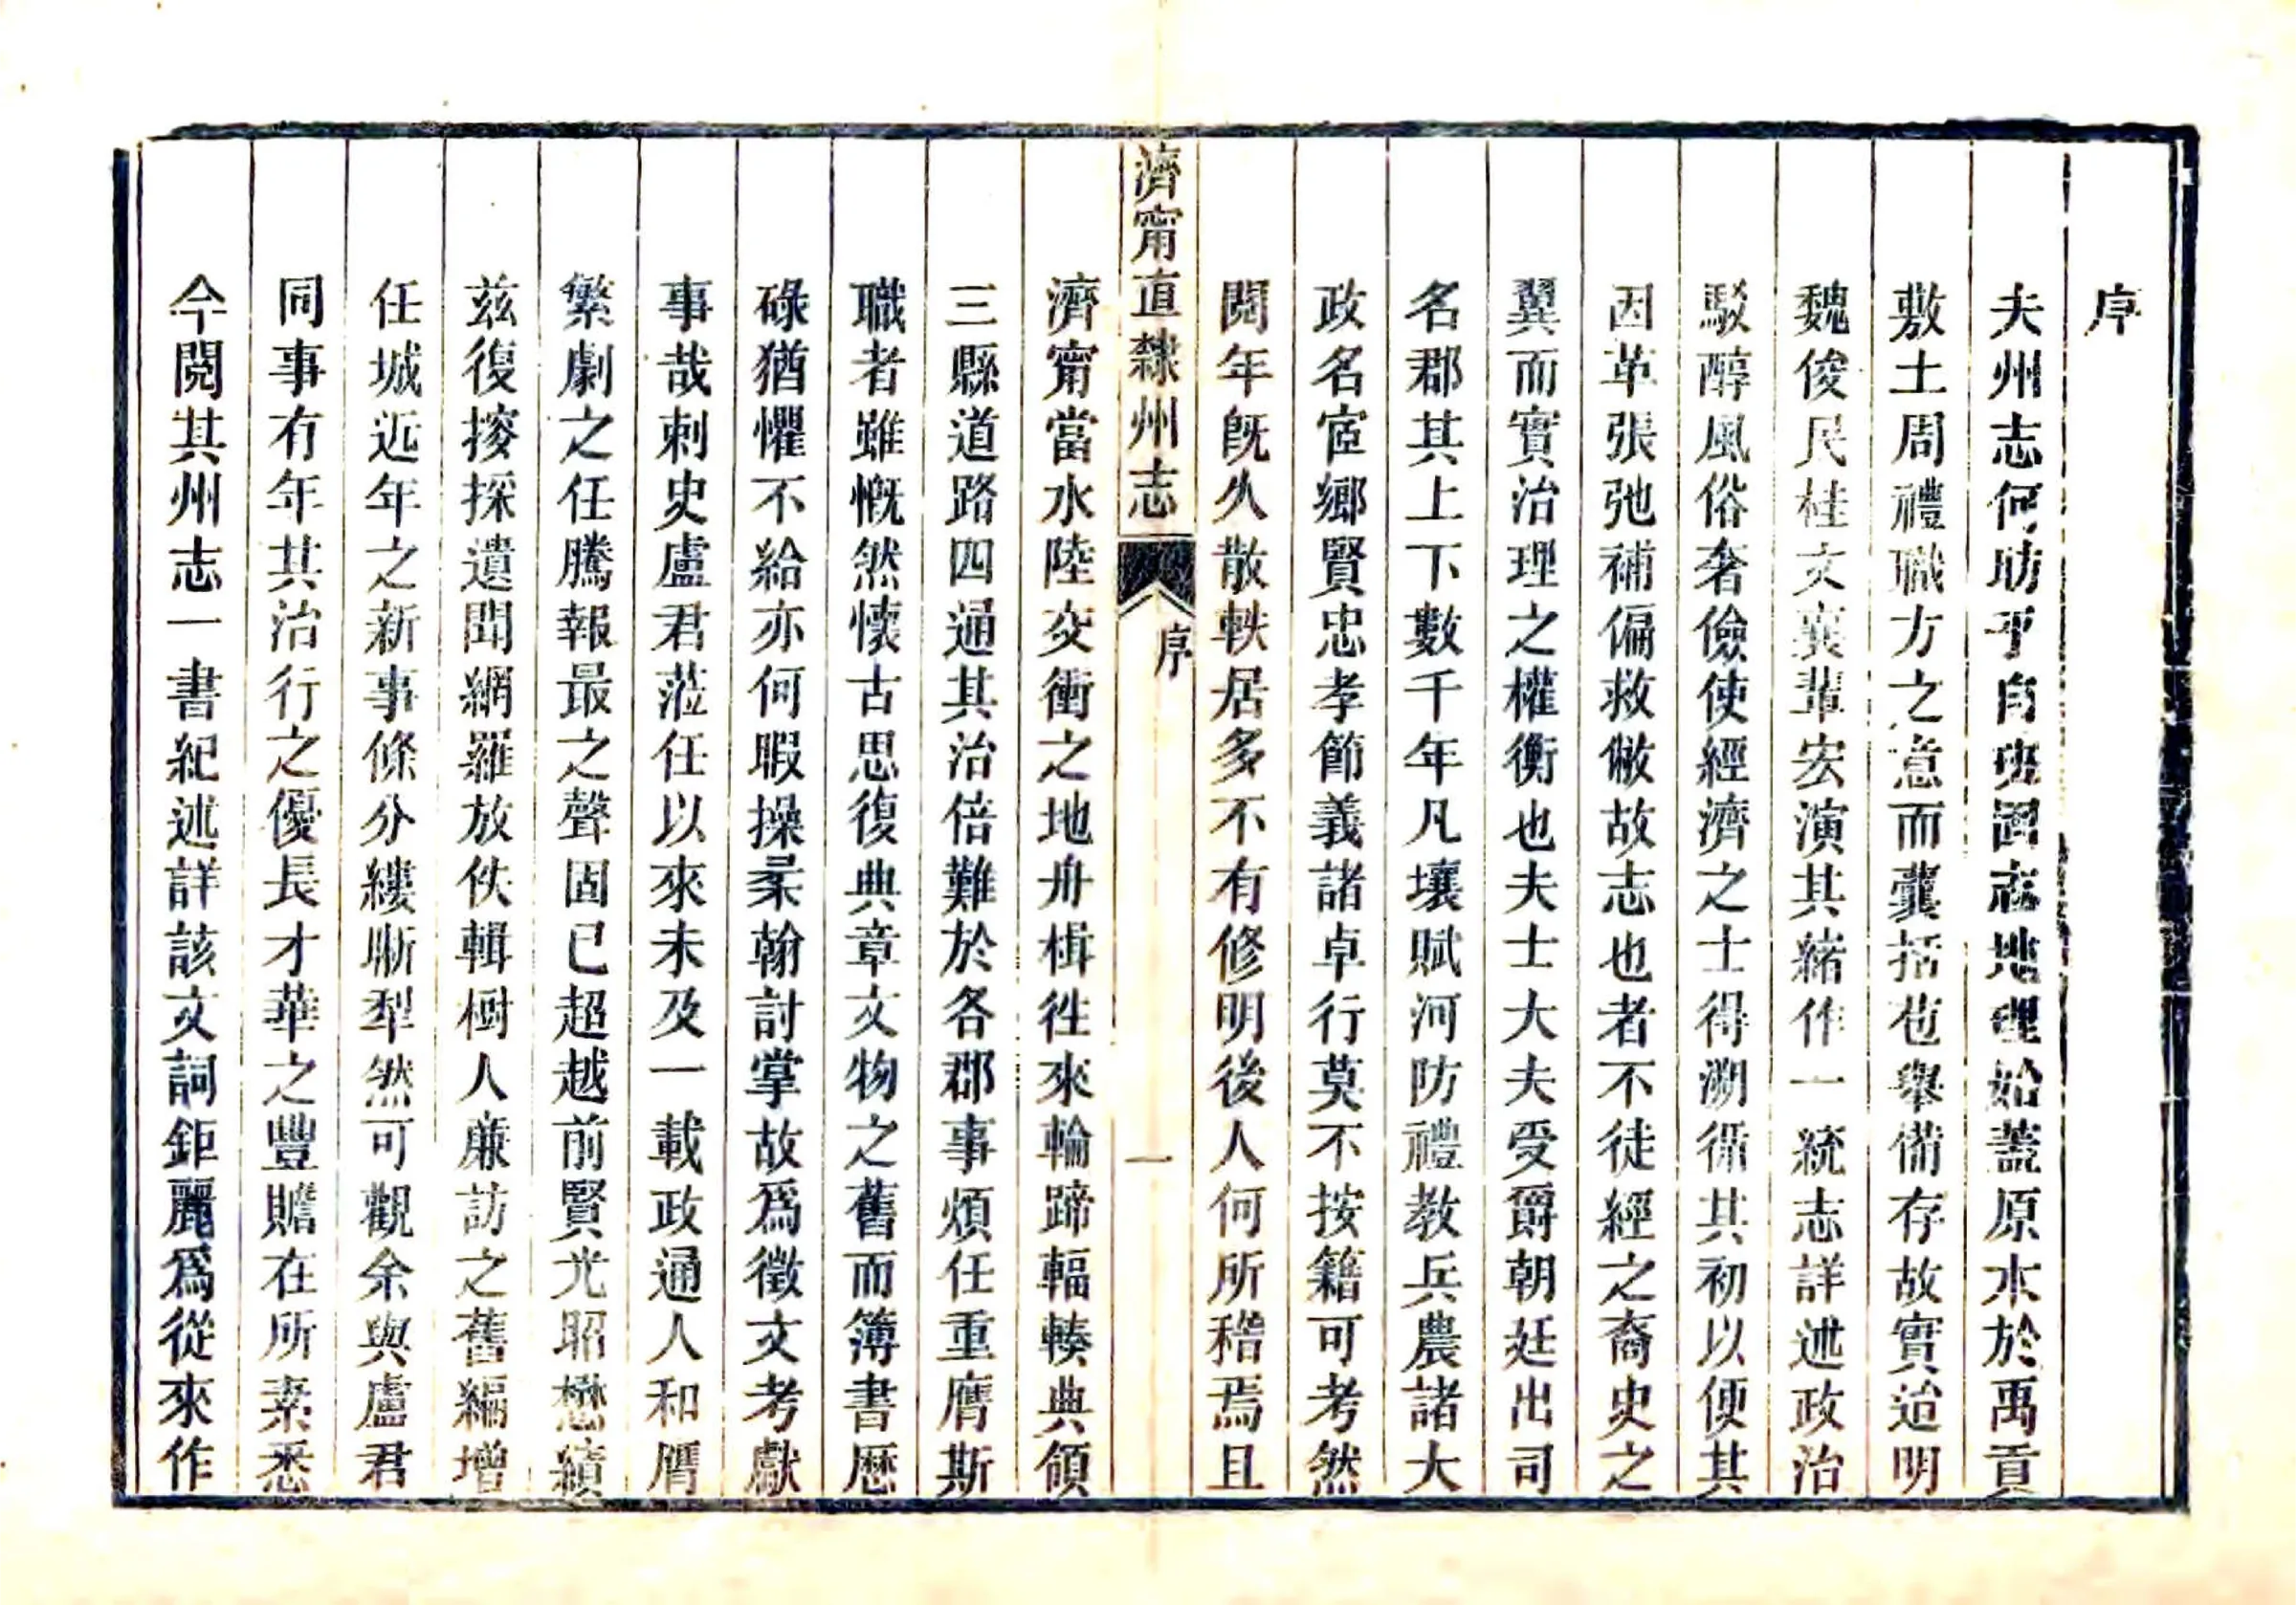 序
夫州志何昉乎自班固志地理始蓋原本於禹貢
敷土周禮職方之意而囊括苞舉備存故實迨明
魏俊民桂文襄輩宏演其緒作一統志詳述政治
駁醇風俗奢儉使經濟之士得溯循其初以便其
因革張弛補偏救敝故志也者不徒經之裔史之
翼而實治理之權衡也夫士大夫受爵朝廷出司
名郡其上下數千年凡壤賦河防禮教兵農諸大
政名宦鄉賢忠孝節義諸卓行莫不按籍可考然
閱年旣久散軼居多不有修明後人何所稽焉且
濟甯直隸州志
序
一
濟甯當水陸交衝之地舟楫徃來輪蹄輻輳典領
三縣道路四通其治倍難於各郡事煩任重膺斯
職者雖慨然懷古思復典章文物之舊而簿書歷
碌猶懼不給亦何暇操柔翰討掌故爲徵文考獻
事哉刺史盧君蒞任以來未及一載政通人和膺
繁劇之任騰報最之聲固已超越前賢光昭懋績
茲復搜採遺聞網羅放佚輯樹人廉訪之舊編增
任城近年之新事條分縷晰犁然可觀余與盧君
同事有年其治行之優長才華之豐贍在所素悉
今閱其州志一書紀述詳該文詞鉅麗爲從來作